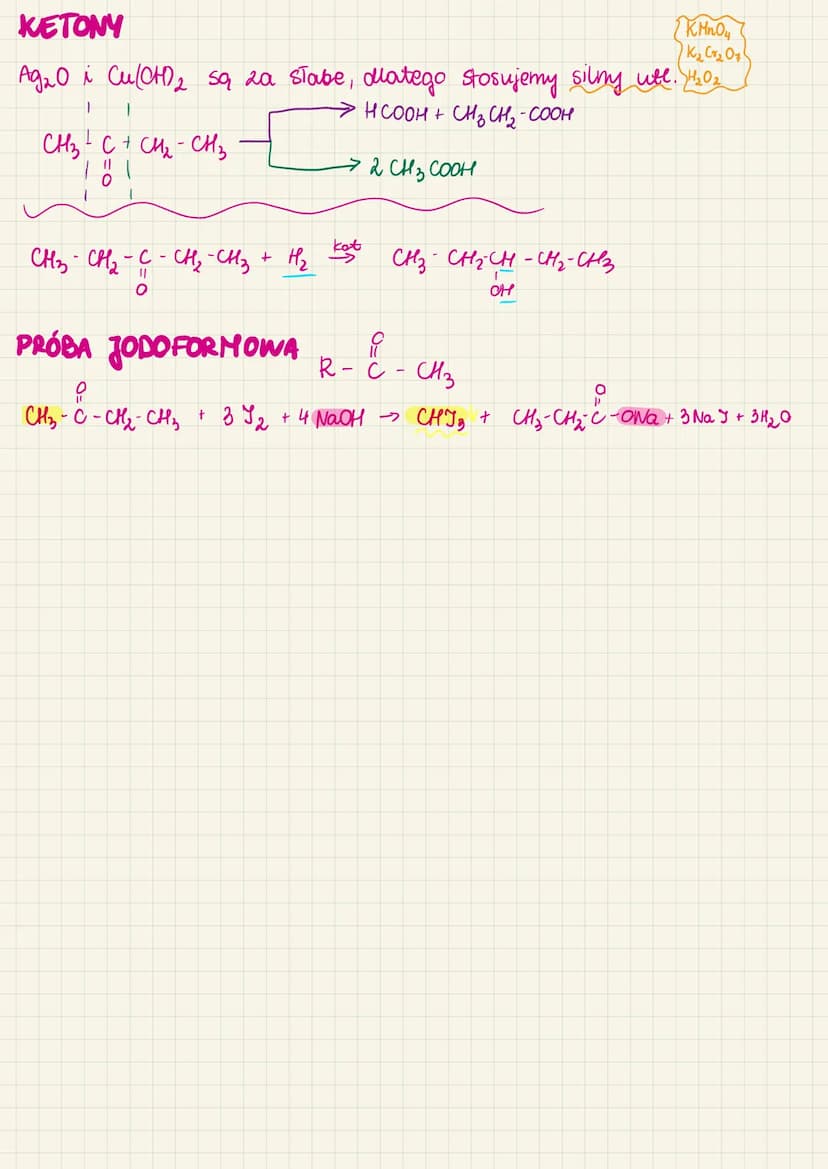 KETONY
KMnO₄
K₂Cr₂O₇
H₂O₂
Ag₂O i Cu(OH)₂ są za słabe, dlatego stosujemy silny utl.
HCOOH + CH₃CH₂-COOH
CH₃ - C - CH₂ - CH₃
O
2 CH₃COOH
CH₃ - CH₂ - C - CH₂ - CH₃ + H₂ kat → CH₃ - CH₂-CH - CH₂-CH₃
O OH
PRÓBA JODOFORMOWA
O
R - C - CH₃
O O
CH₃ - C - CH₂ - CH₃ + 3 J₂ + 4 NaOH → CHJ₃ + CH₃-CH₂-C-ONa + 3NaJ + 3H₂O